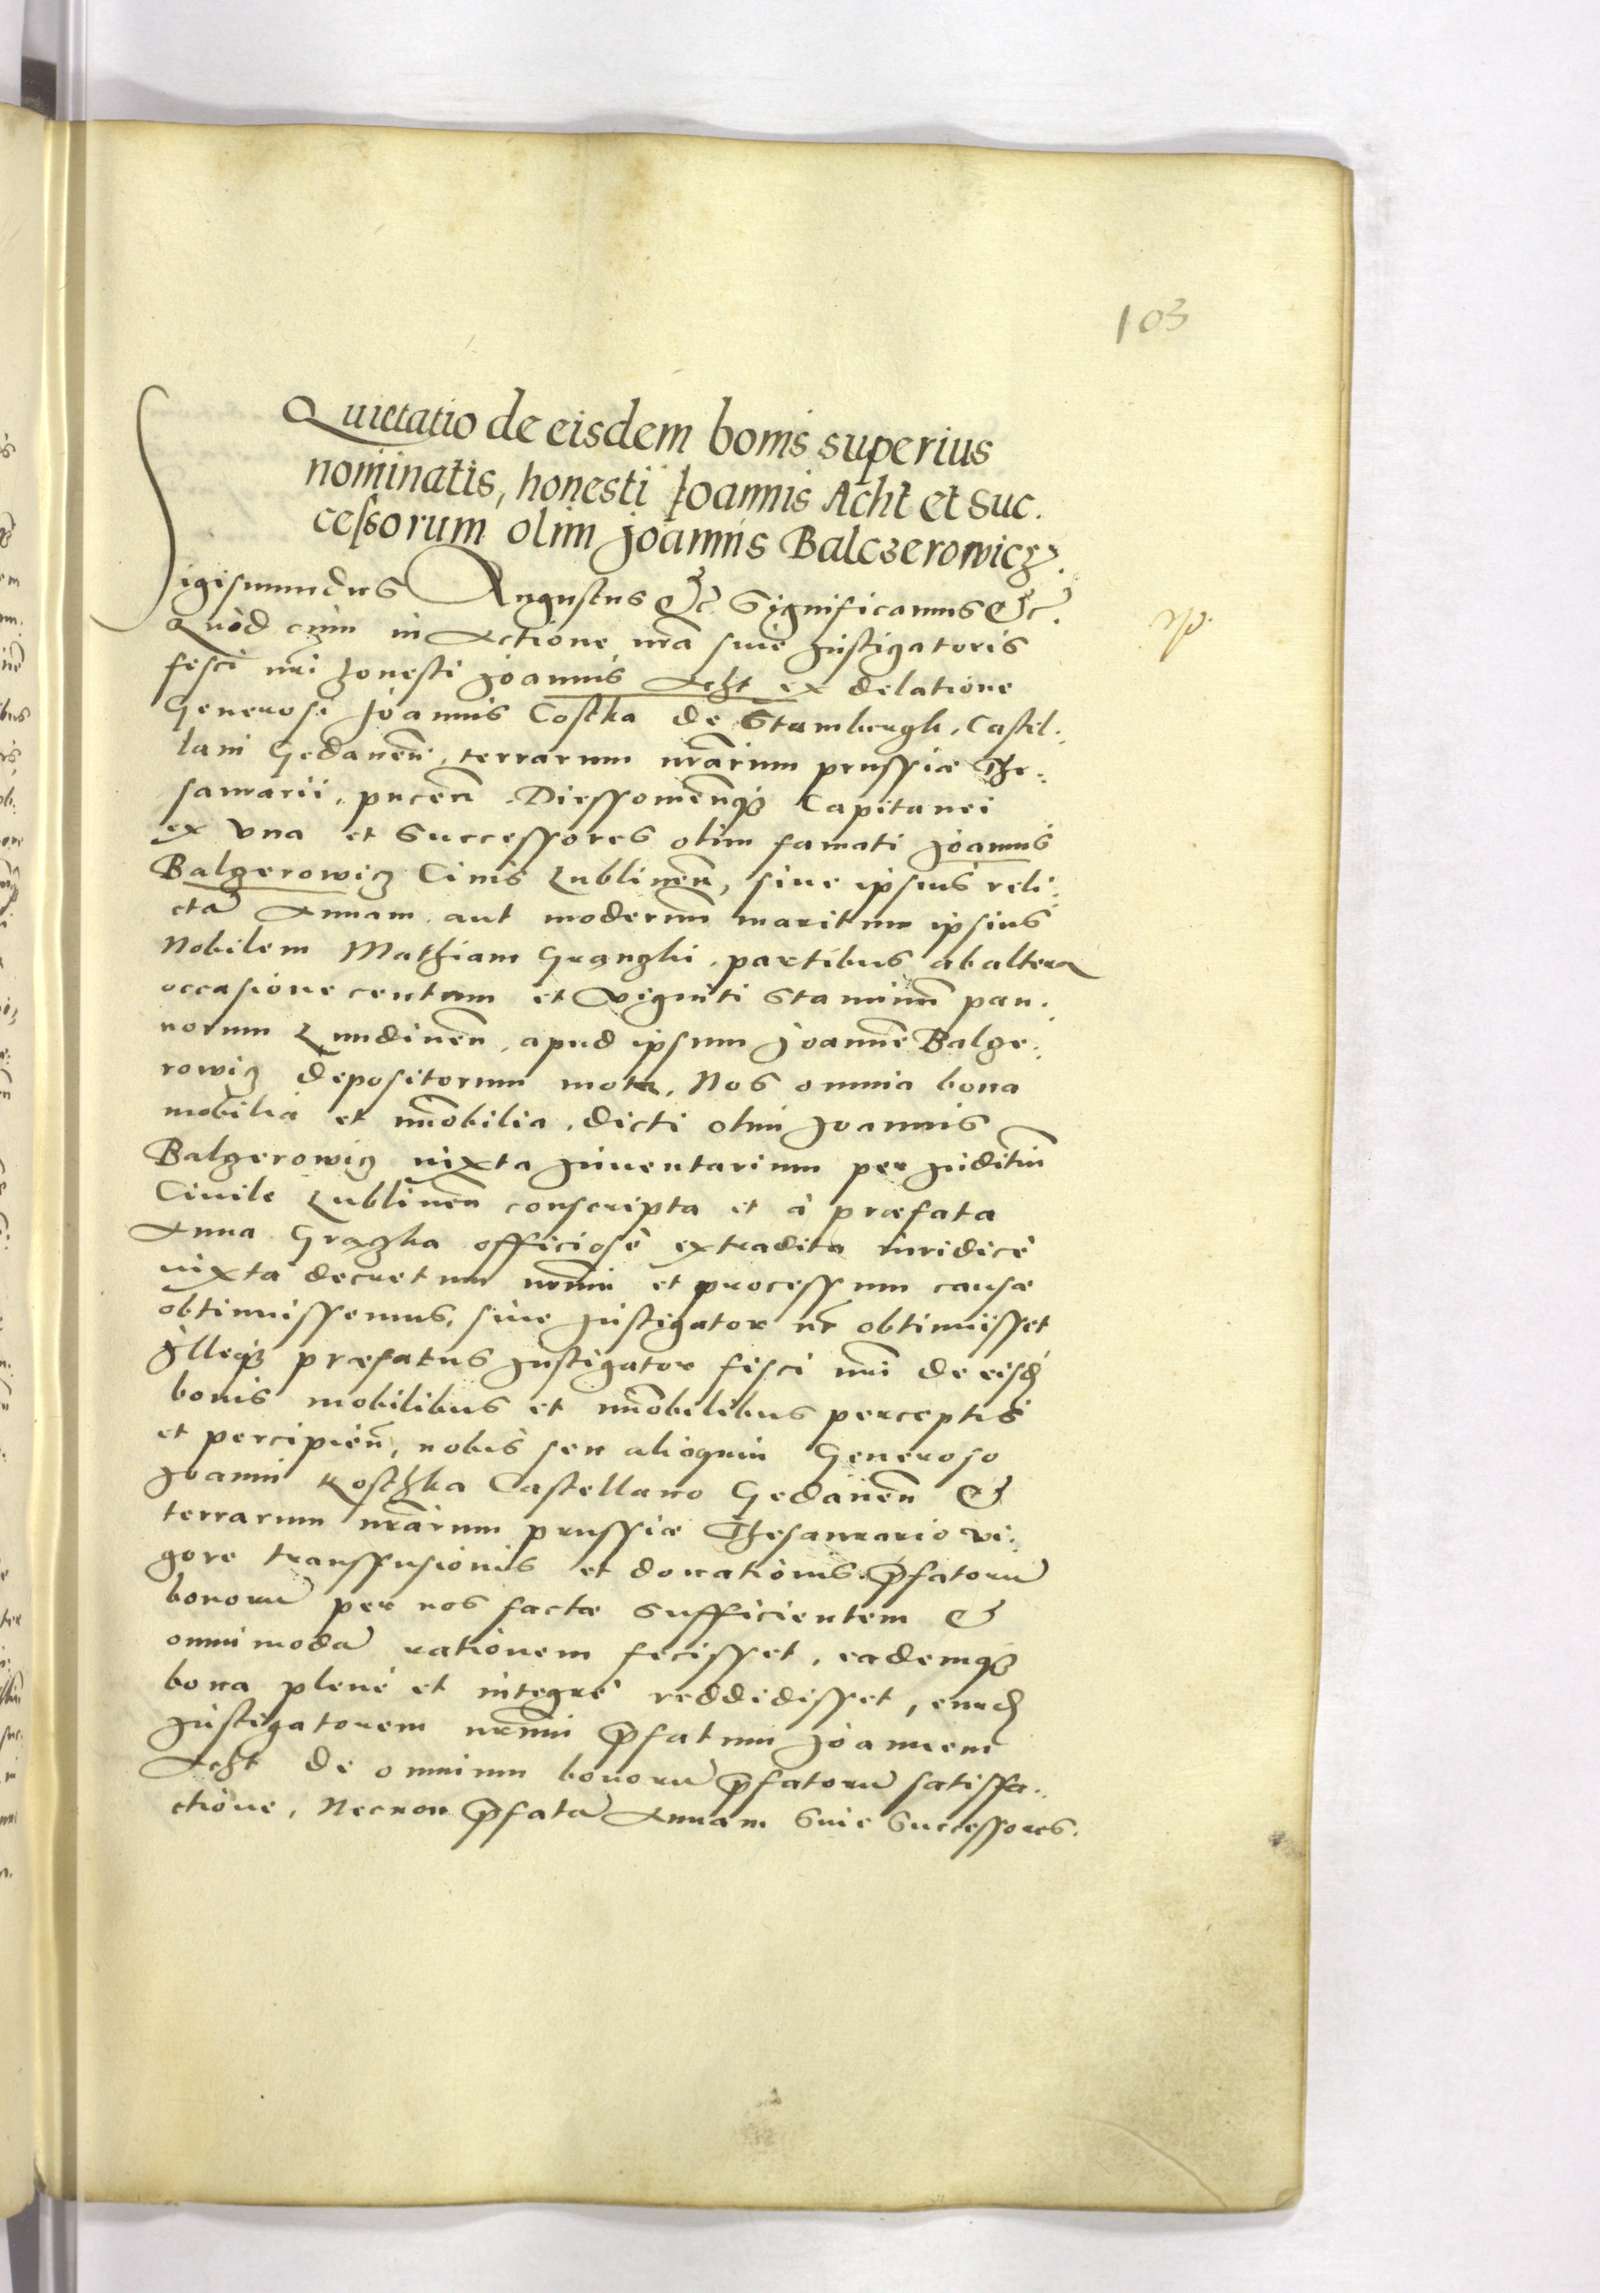 103
Quietatio de eisdem bonis superius
nominatis, honesti Joannis Acht et suc.
cessorum olim Joannis Balczerowicz.
Sigismundus Augustus &c̃ Significamus &c̃.
Quòd cum in Actione nr̃a siue Instigatoris
fisci nr̃i honesti Joannis Acht ex delatione
Generosi Joannis Costka de Stambergk, Castel:
lani Gedanen̄, terrarum nr̃arum prussiæ The:
saurarii, pucen̄ Dirssouien̄q̃ Capitanei
ex vna et Successores olim famati Joannis
Balzerowicz Ciuis Lublinen̄, siue ipsius reli:
ctã Annam aut modernũ maritum ipsius
Nobilem Mathiam Granzki, partibus ab altera
occasione centum et viginti staminũ pan:
norum Lundinen̄, apud ipsum Joannẽ Balze:
rowicz depositorum mota, Nos omnia bona
mobilia et im̃obilia, dicti olim Joannis
Balzerowicz iuxta Inuentarium per Juditiũ
Ciuile Lublinen̄ conscripta et à præfata
Anna Grazka officiosè extradita iuridicè
iuxta decretum nr̃um et processum causæ
obtinuissemus, siue Instigator nr̃ obtinuisset
Illeq̃ præfatus Instigator fisci nr̃i de eisd̃
bonis mobilibus et im̃obilibus perceptis
et percipien̄, nobis seu alioquin Generoso
Joanni Kosthka Castellano Gedanen̄ &
terrarum nr̃arum prussiæ Thesaurario vi:
gore transfusionis et donationis p̃fatorũ
bonorũ per nos factæ sufficientem &
omnimodã rationem fecisset, eademq̃
bona plenè et integrè reddidisset, eund̃
Instigatorem nr̃um p̃fatum Joannem
Acht de omnium bonorũ p̃fatorũ satisfa:
ctione, Necnon p̃fatã Annam siue Successores.